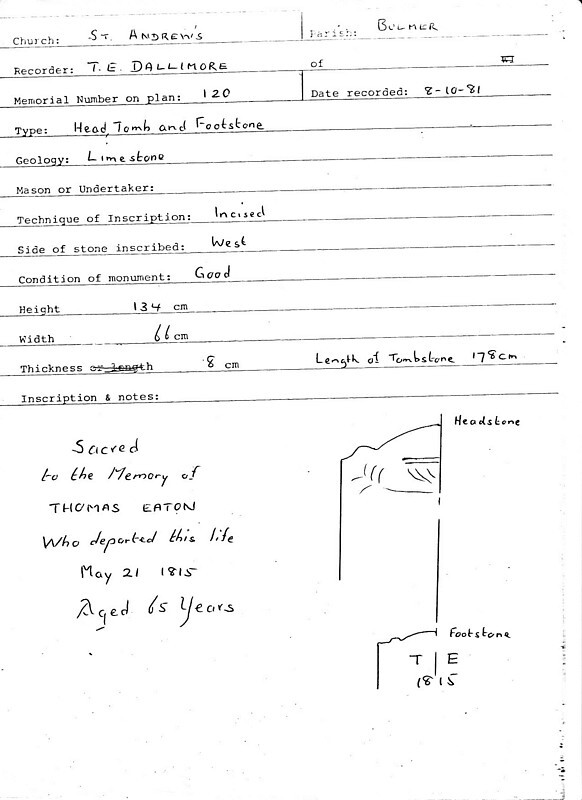 Church: ST. ANDREW'S
Parish: BULMER
Recorder: T. E. DALLIMORE
of
Memorial Number on plan: 120
Date recorded: 8-10-81
Type: Head, Tomb and Footstone
Geology: Limestone
Mason or Undertaker:
Technique of Inscription: Incised
Side of stone inscribed: West
Condition of monument: Good
Height 134 cm
Width 66 cm
Thickness or length 8 cm Length of Tombstone 178cm
Inscription & notes:
Headstone
Sacred
to the Memory of
THOMAS EATON
Who departed this life
May 21 1815
Aged 65 Years
Footstone
T E
1815